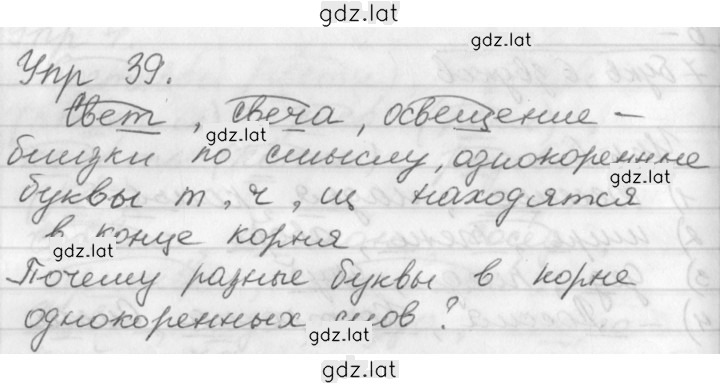 gdz.lat
gdz.lat
Упр 39.
Свет, свеча, освещение –
gdz.lat
близки по смыслу, однокоренные
gdz.lat
буквы т, ч, щ находятся
в конце корня
gdz.lat
Почему разные буквы в корне
однокоренных слов?
gdz.lat
gdz.lat